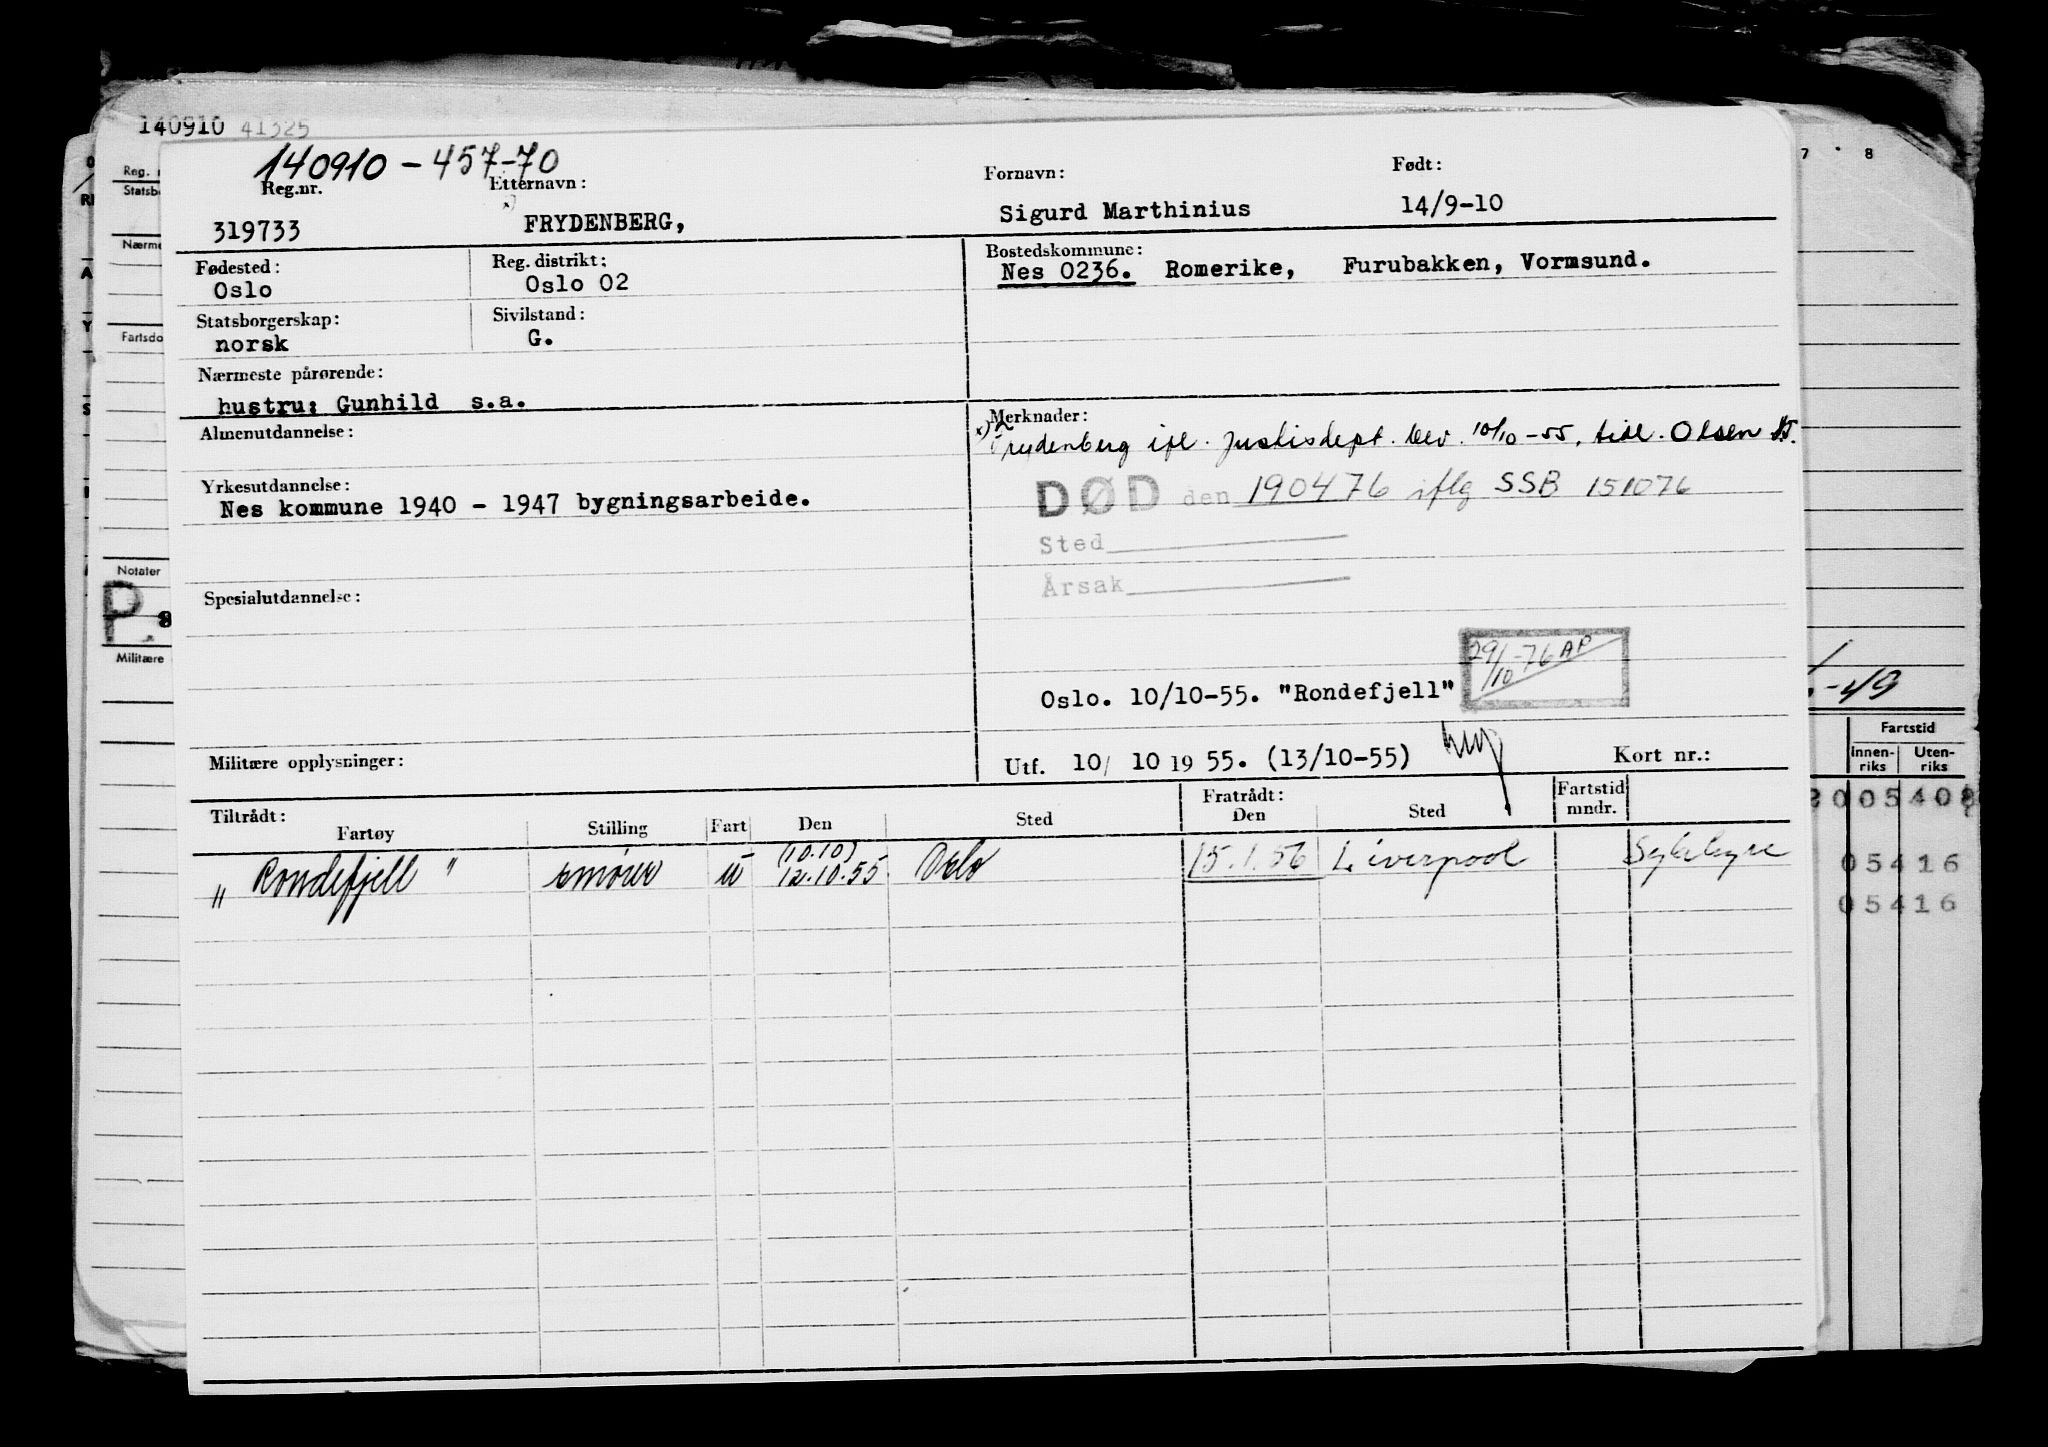 140910 41325
140910-457-70
Reg.nr. Etternavn: Fornavn: Født:
x)
319733 FRYDENBERG, Sigurd Marthinius 14/9-10
Fødested: Reg. distrikt: Bostedskommune:
Oslo Oslo 02 Nes 0236. Romerike, Furubakken, Vormsund.
Statsborgerskap: Sivilstand:
norsk G.
Nærmeste pårørende:
hustru: Gunhild s.a.
Almenutdannelse: Merknader:
x) Frydenberg ifl. Justisdept. bev. 10/10-55, tidl. Olsen
Yrkesutdannelse:
Nes kommune 1940 - 1947 bygningsarbeide.
DØD den 190476 iflg SSB 151076
Sted
Årsak
Spesialutdannelse:
29/10-76 AP
Oslo. 10/10-55. "Rondefjell"
Militære opplysninger: Utf. 10/ 10 19 55. (13/10-55) Kort nr.:
Tiltrådt: Fratrådt: Fartstid
Fartøy Stilling Fart Den Sted Den Sted mndr.
(10.10)
"Rondefjell" smører u 12.10.55 Oslo 15.1.56 Liverpool
Reg. n
Statsb
Nærme
Fartsdo
Notater
P.
Militære
7 8
-49
Fartstid
Innen-riks Uten-riks
05408
05416
05416